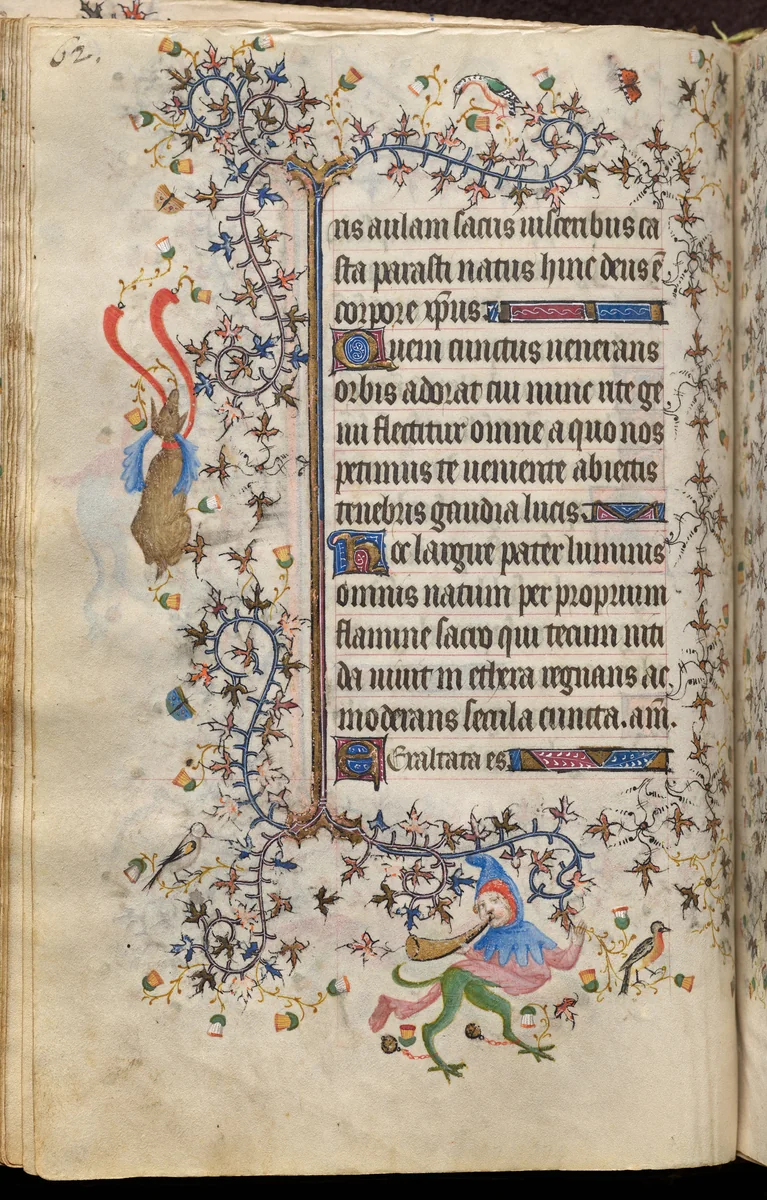 62.
ris aulam sacris visceribus ca
sta parasti natus hinc deus ē
corpore xp̄us.
Quem cunctus venerans
orbis adorat cui nunc rite ge
nu flectitur omne a quo nos
petimus te veniente abiectis
tenebris gaudia lucis.
Hec largire pater luminis
omnis natum per proprium
flamine sacro qui tecum niti
da vivit in ethera regnans ac
moderans secula cuncta. am̄.
Exaltata es